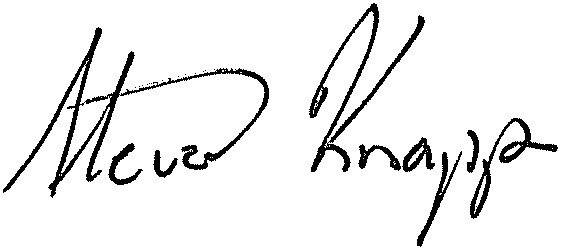 Steven Knapp